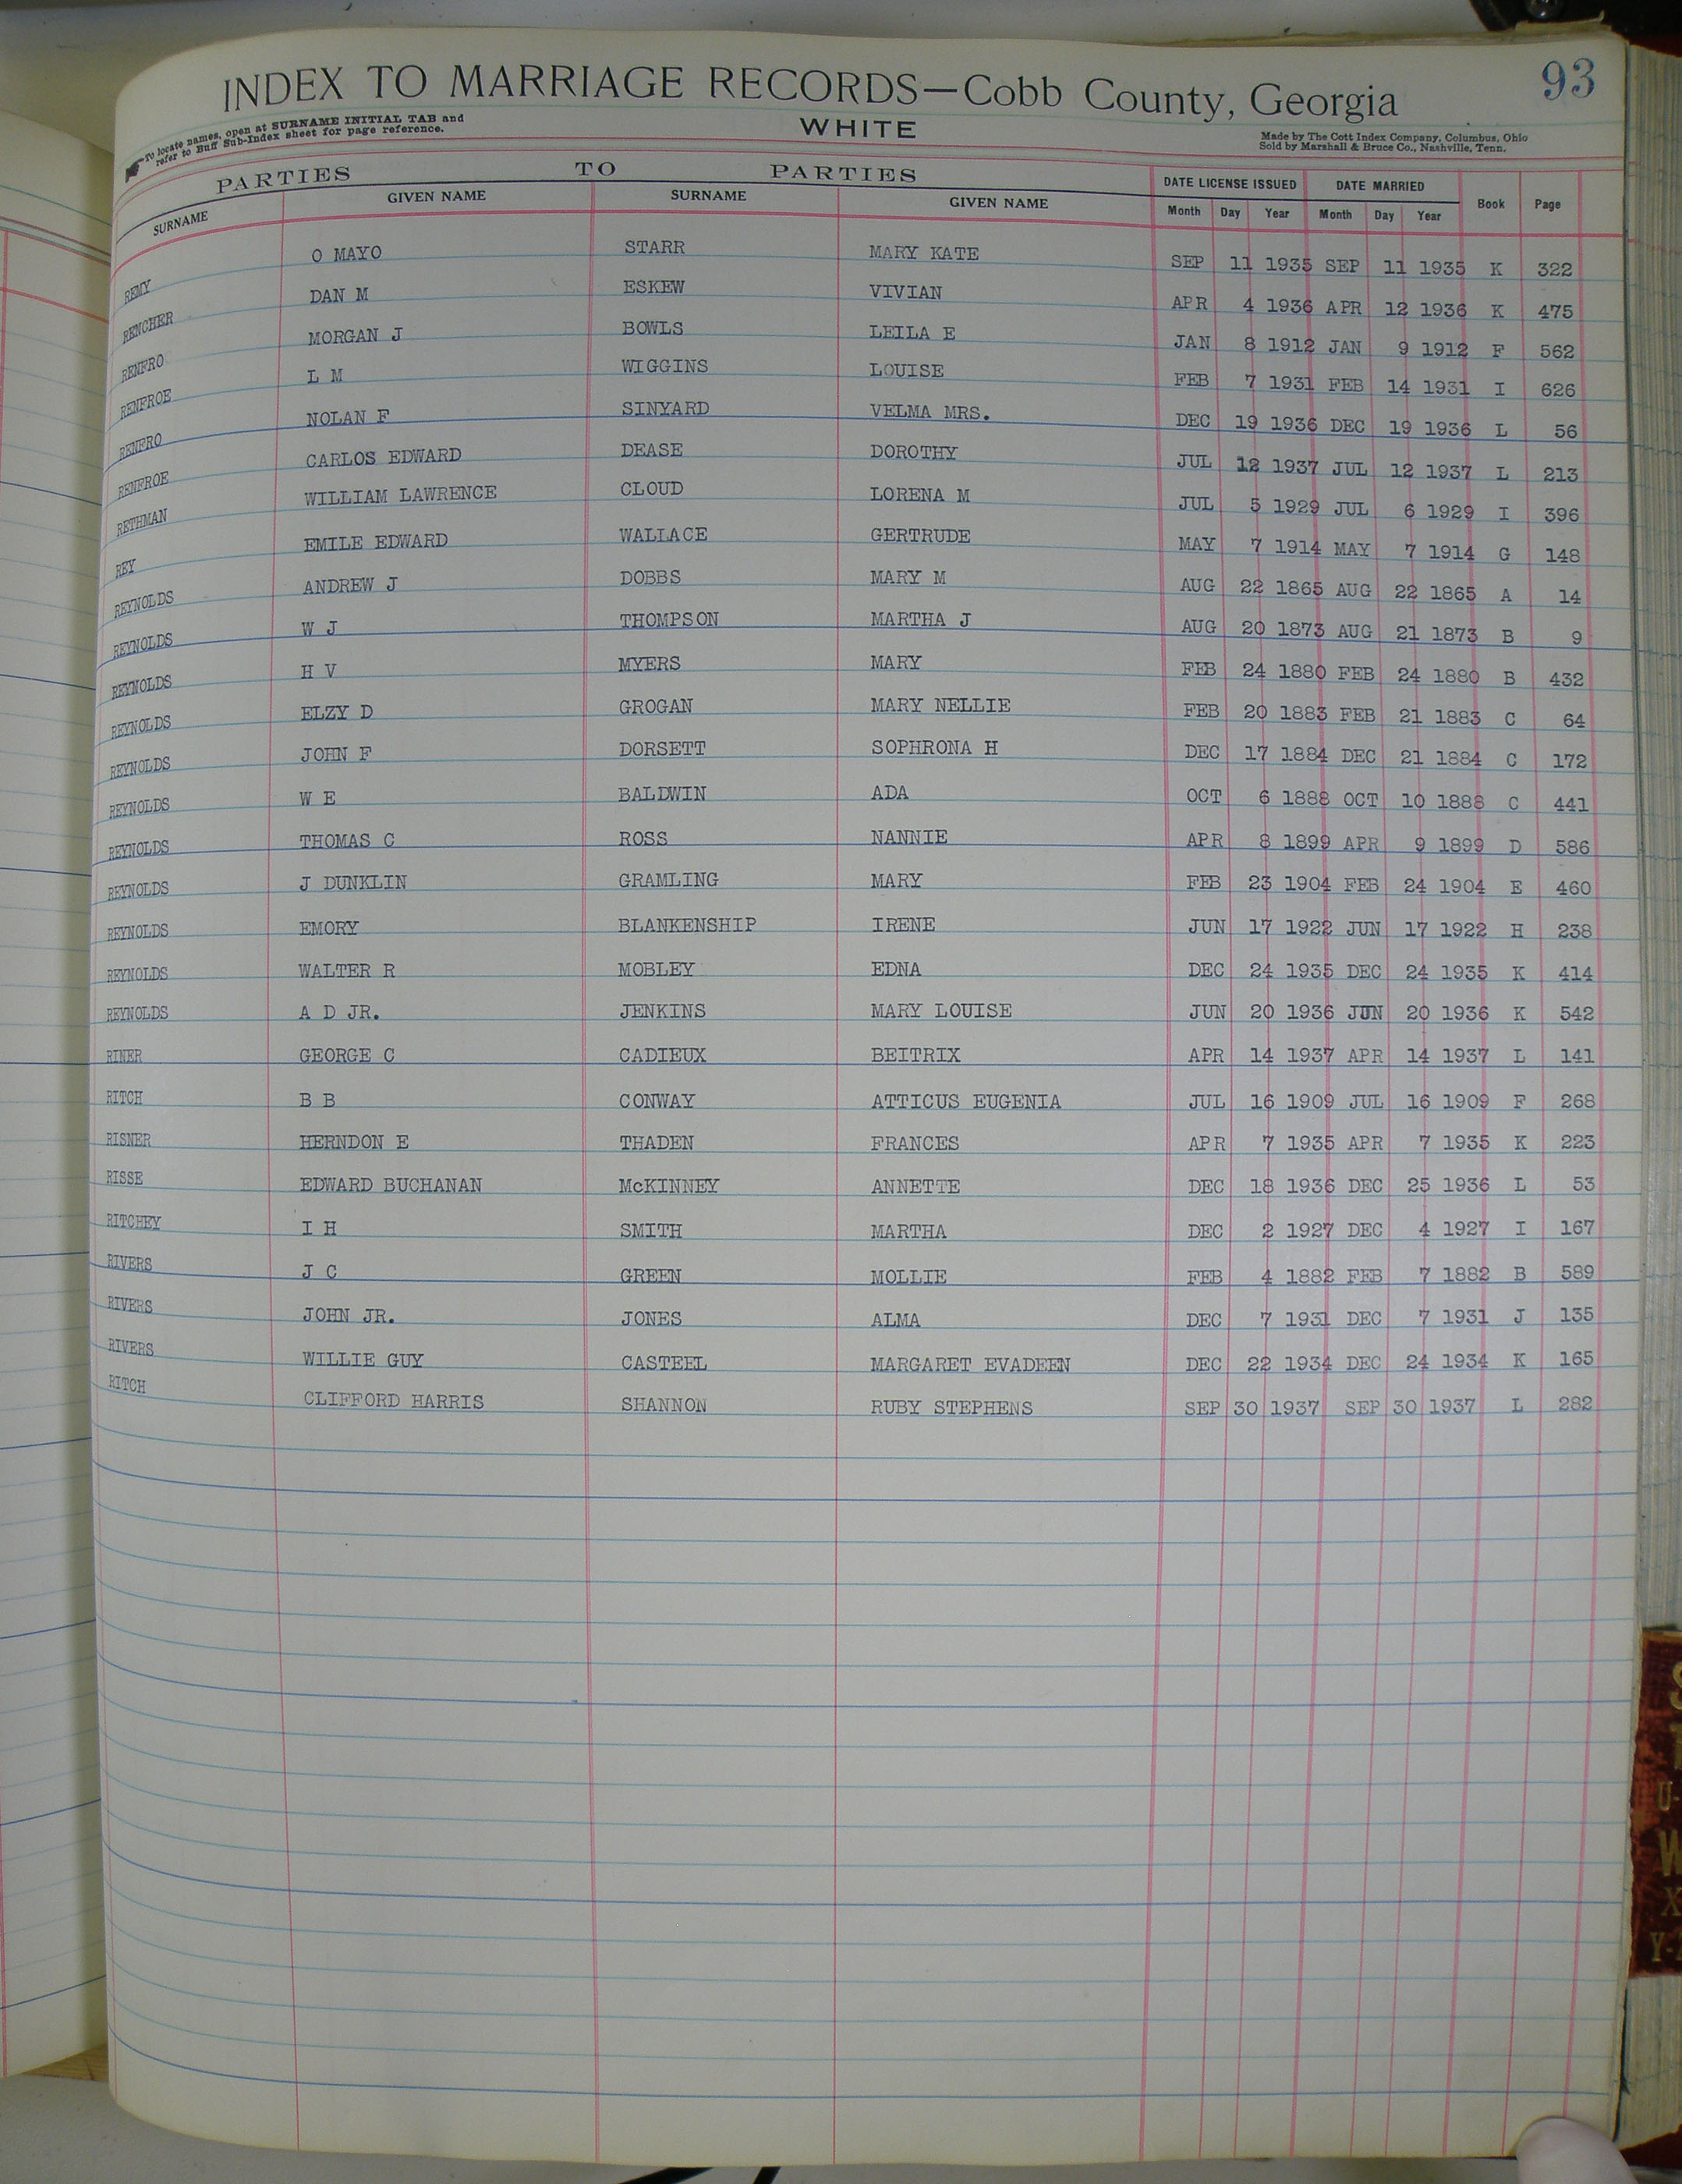 93
INDEX TO MARRIAGE RECORDS—Cobb County, Georgia
To locate names, open at SURNAME INITIAL TAB and
refer to Buff Sub-Index sheet for page reference.
WHITE
Made by The Cott Index Company, Columbus, Ohio
Sold by Marshall & Bruce Co., Nashville, Tenn.
PARTIES TO PARTIES DATE LICENSE ISSUED DATE MARRIED Book Page
SURNAME GIVEN NAME SURNAME GIVEN NAME Month Day Year Month Day Year
REMY O MAYO STARR MARY KATE SEP 11 1935 SEP 11 1935 K 322
RENCHER DAN M ESKEW VIVIAN APR 4 1936 APR 12 1936 K 475
RENFRO MORGAN J BOWLS LEILA E JAN 8 1912 JAN 9 1912 F 562
RENFROE L M WIGGINS LOUISE FEB 7 1931 FEB 14 1931 I 626
RENFRO NOLAN F SINYARD VELMA MRS. DEC 19 1936 DEC 19 1936 L 56
RENFROE CARLOS EDWARD DEASE DOROTHY JUL 12 1937 JUL 12 1937 L 213
RETHMAN WILLIAM LAWRENCE CLOUD LORENA M JUL 5 1929 JUL 6 1929 I 396
REY EMILE EDWARD WALLACE GERTRUDE MAY 7 1914 MAY 7 1914 G 148
REYNOLDS ANDREW J DOBBS MARY M AUG 22 1865 AUG 22 1865 A 14
REYNOLDS W J THOMPSON MARTHA J AUG 20 1873 AUG 21 1873 B 9
REYNOLDS H V MYERS MARY FEB 24 1880 FEB 24 1880 B 432
REYNOLDS ELZY D GROGAN MARY NELLIE FEB 20 1883 FEB 21 1883 C 64
REYNOLDS JOHN F DORSETT SOPHRONA H DEC 17 1884 DEC 21 1884 C 172
REYNOLDS W E BALDWIN ADA OCT 6 1888 OCT 10 1888 C 441
REYNOLDS THOMAS C ROSS NANNIE APR 8 1899 APR 9 1899 D 586
REYNOLDS J DUNKLIN GRAMLING MARY FEB 23 1904 FEB 24 1904 E 460
REYNOLDS EMORY BLANKENSHIP IRENE JUN 17 1922 JUN 17 1922 H 238
REYNOLDS WALTER R MOBLEY EDNA DEC 24 1935 DEC 24 1935 K 414
REYNOLDS A D JR. JENKINS MARY LOUISE JUN 20 1936 JUN 20 1936 K 542
RINER GEORGE C CADIEUX BEITRIX APR 14 1937 APR 14 1937 L 141
RITCH B B CONWAY ATTICUS EUGENIA JUL 16 1909 JUL 16 1909 F 268
RISNER HERNDON E THADEN FRANCES APR 7 1935 APR 7 1935 K 223
RISSE EDWARD BUCHANAN McKINNEY ANNETTE DEC 18 1936 DEC 25 1936 L 53
RITCHEY I H SMITH MARTHA DEC 2 1927 DEC 4 1927 I 167
RIVERS J C GREEN MOLLIE FEB 4 1882 FEB 7 1882 B 589
RIVERS JOHN JR. JONES ALMA DEC 7 1931 DEC 7 1931 J 135
RIVERS WILLIE GUY CASTEEL MARGARET EVADEEN DEC 22 1934 DEC 24 1934 K 165
RITCH CLIFFORD HARRIS SHANNON RUBY STEPHENS SEP 30 1937 SEP 30 1937 L 282